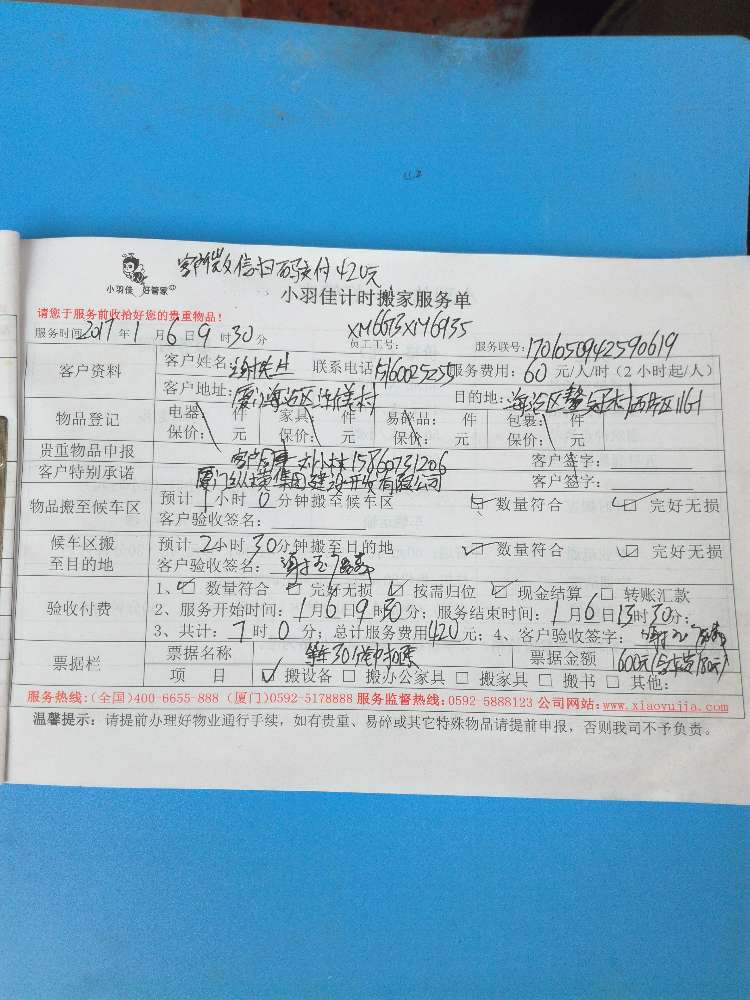 客户微信扫码支付420元
小羽佳 好管家
小羽佳计时搬家服务单
请您于服务前收拾好您的贵重物品!
服务时间2017年1月6日9时30分 员工工号: XM6673XM6935 服务联号:1701050942590619
客户资料 客户姓名:谢先生 联系电话 服务费用:60元/人/时(2小时起/人)
客户地址:厦门海沧区 村 目的地:海沧区鳌冠村西片区116-1
物品登记 电器: 件 家具: 件 易碎品: 件 包裹: 件
保价: 元 保价: 元 保价: 元 保价: 元
贵重物品申报 客户 刘小林15860731206 客户签字:
客户特别承诺 厦门纵横集团建设开发有限公司 客户签字:
物品搬至候车区 预计1小时0分钟搬至候车区 ☑ 数量符合 ☑ 完好无损
客户验收签名:
候车区搬至目的地 预计2小时30分钟搬至目的地 ☑ 数量符合 ☑ 完好无损
客户验收签名:
验收付费 1、☑ 数量符合 ☑ 完好无损 ☑ 按需归位 ☑ 现金结算 □ 转账汇款
2、服务开始时间:1月6日9时30分;服务结束时间:1月6日13时30分;
3、共计:7时0分;总计服务费用420元;4、客户验收签字:
票据栏 票据名称 30分钟中扣除 票据金额 600元(含车费180元)
项 目 ☑ 搬设备 □ 搬办公家具 □ 搬家具 □ 搬书 □ 其他:
服务热线:(全国)400-6655-888 (厦门)0592-5178888 服务监督热线:0592-5888123 公司网站:www.xiaoyujia.com
温馨提示:请提前办理好物业通行手续,如有贵重、易碎或其它特殊物品请提前申报,否则我司不予负责。